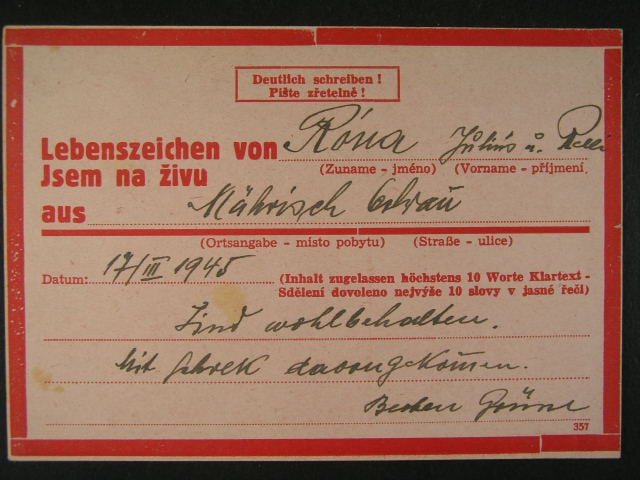 Deutlich schreiben !
Pište zřetelně !
Lebenszeichen von Róna Julius u.
(Zuname – jméno) (Vorname – příjmení
Jsem na živu
aus Mährisch Ostrau
(Ortsangabe – místo pobytu) (Straße – ulice)
Datum: 17/III 1945 (Inhalt zugelassen höchstens 10 Worte Klartext –
Sdělení dovoleno nejvýše 10 slovy v jasné řeči)
Sind wohlbehalten.
Mit Schrek davongekommen.
Besten
357